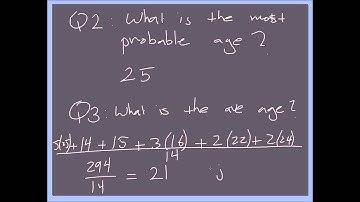 Q2: What is the most
probable age?
25
Q3: What is the ave age?
5(25)+14+15+3(16)+2(22)+2(24)
14
294
14
= 21 j